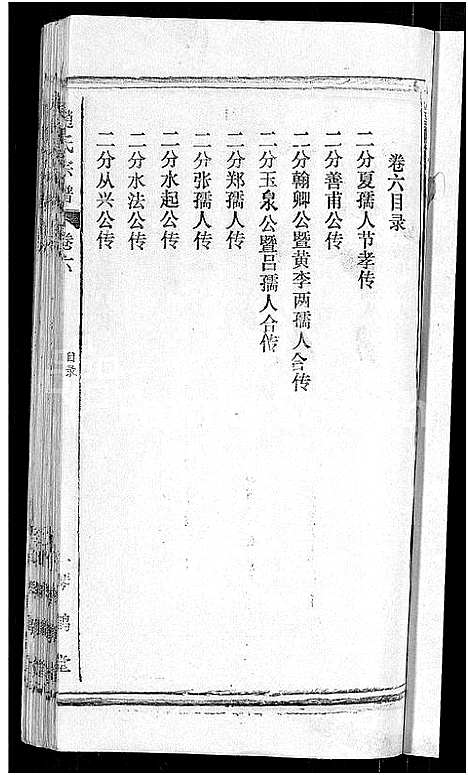 卷六目录
二分夏孺人节孝传
二分善甫公传
二分翰卿公暨黄李两孺人合传
二分玉泉公暨吕孺人合传
二分郑孺人传
二分张孺人传
二分水起公传
二分水法公传
二分从兴公传
赵氏宗谱 卷六
目录
琴鹤堂